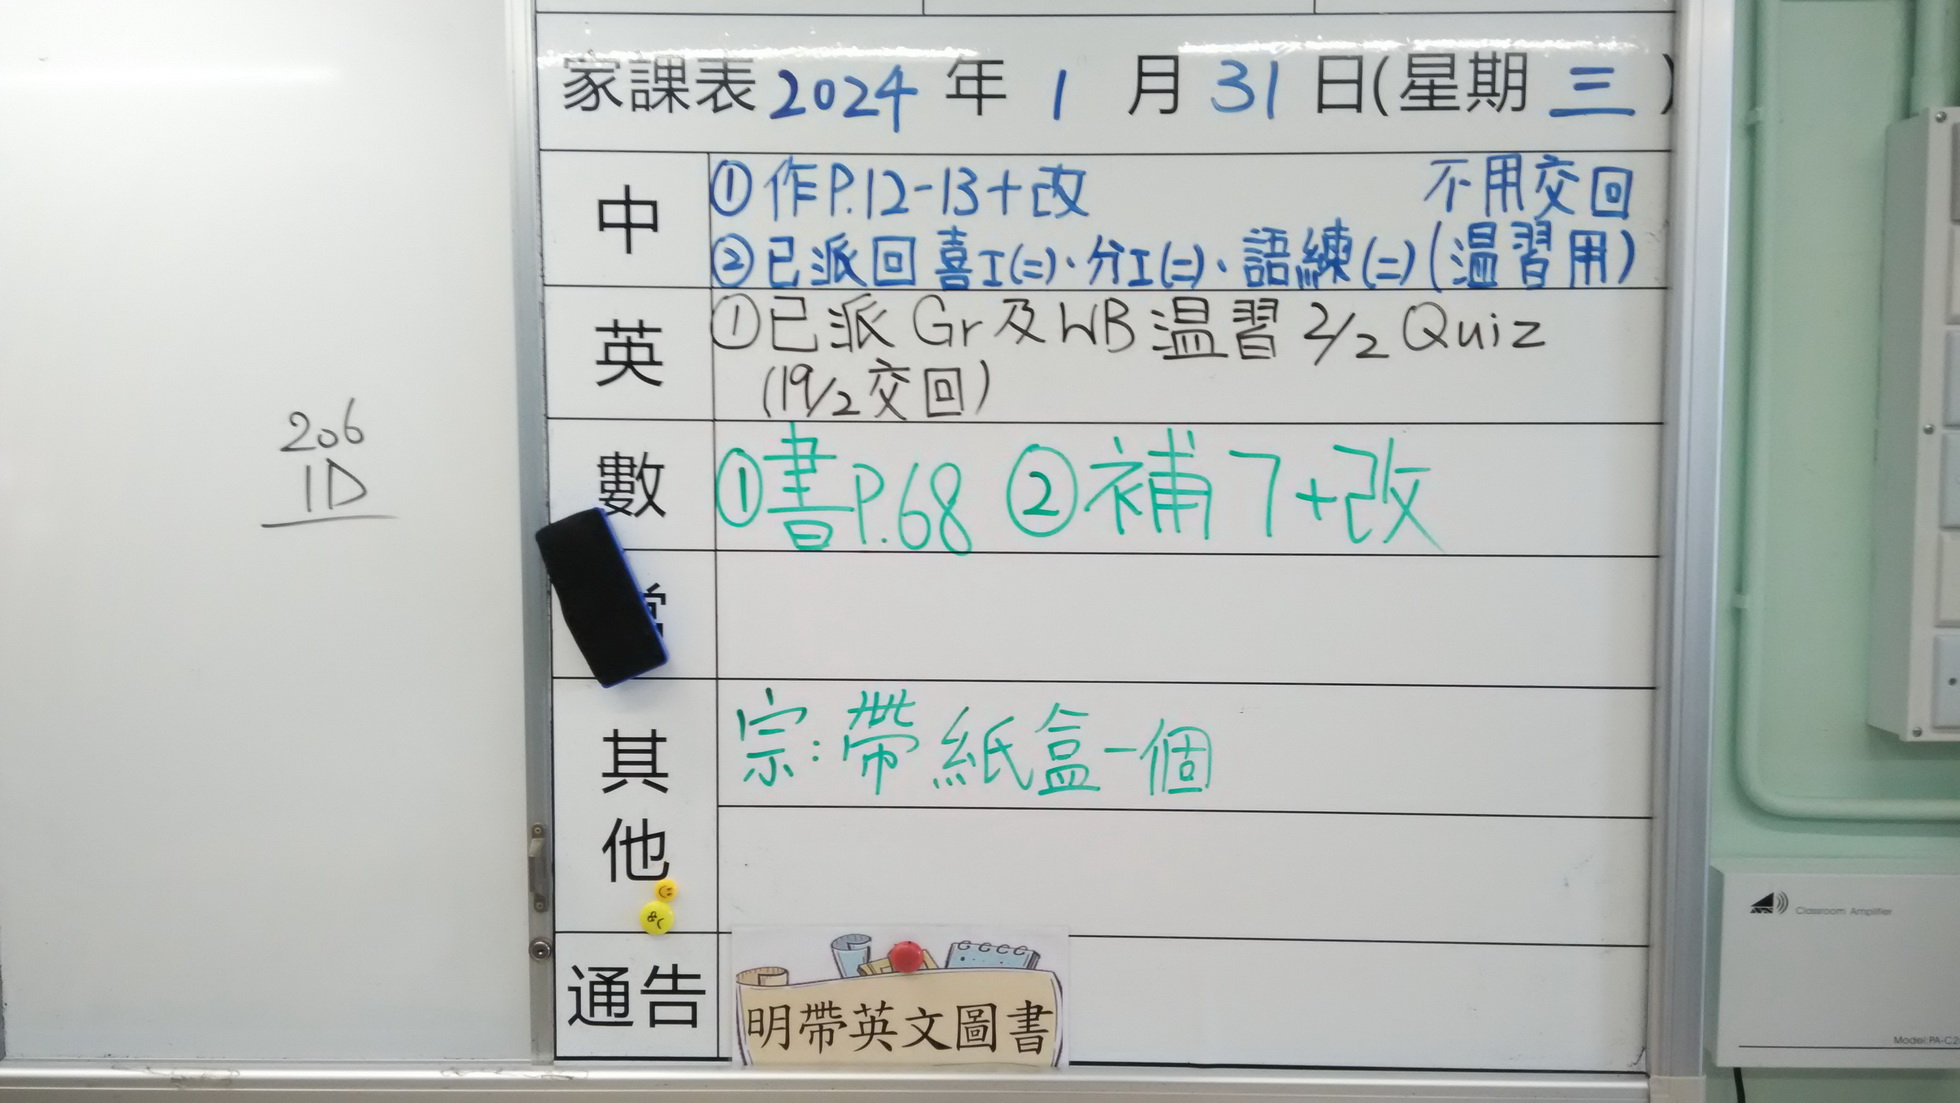 家課表 2024 年 1 月 31 日(星期 三 )
中
①作P.12-13+改 不用交回
②已派回喜I(二)、分I(二)、語練(二)(温習用)
英
①已派Gr及WB温習 2/2 Quiz
(19/2交回)
數
①書P.68 ②補7+改
其他
宗:帶紙盒一個
通告
明帶英文圖書
206
1D
Classroom Amplifier